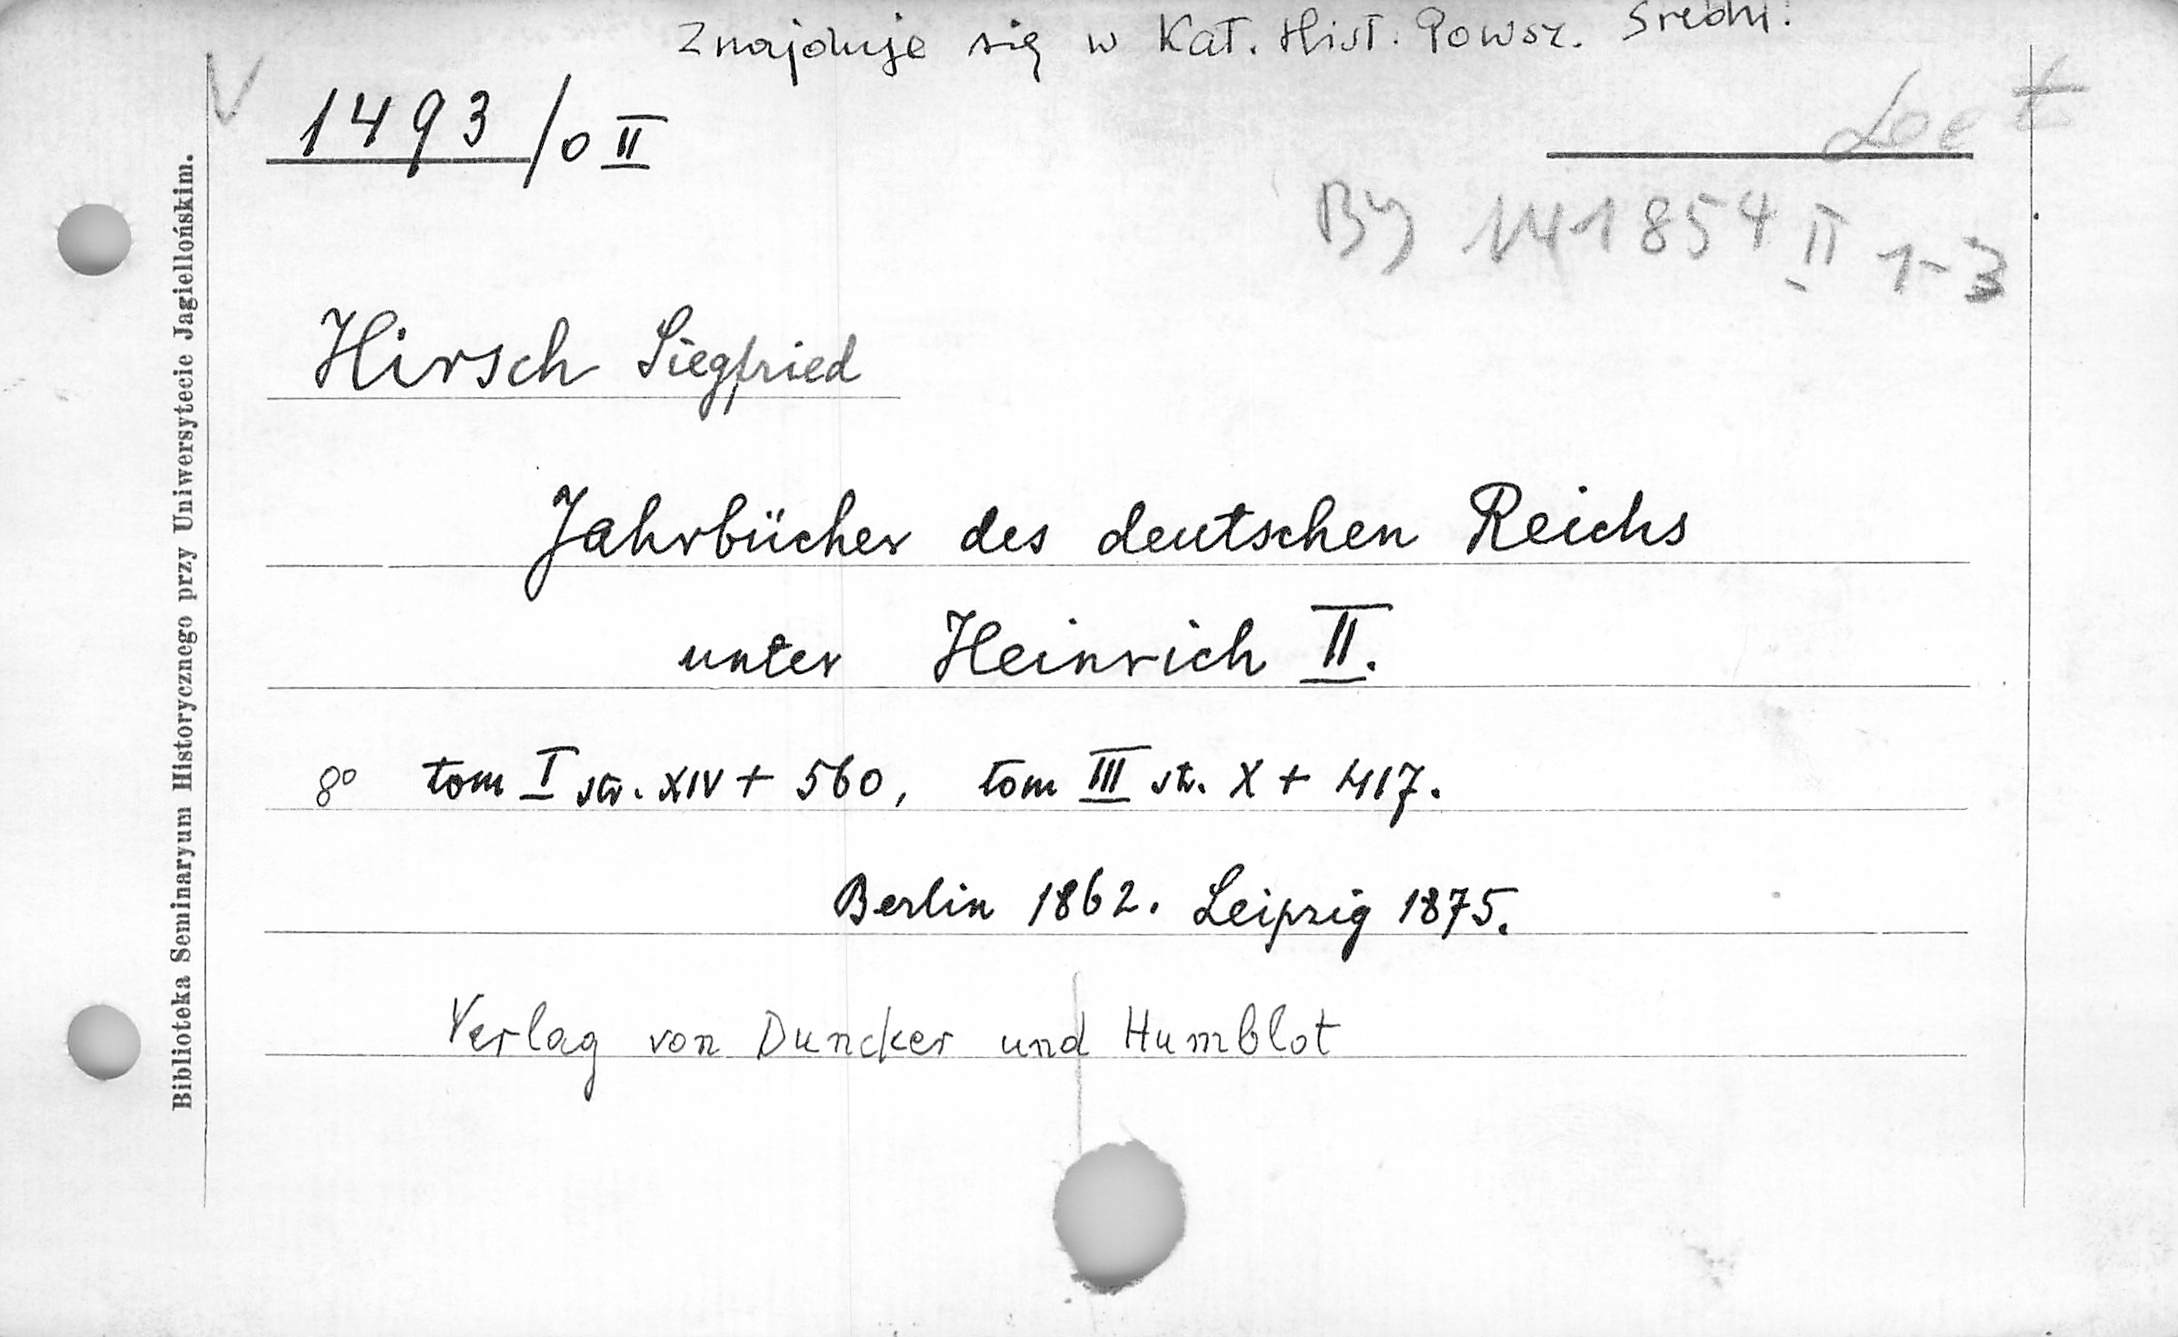 Znajduje się w Kat. Hist. Powsz. Średni.
1493/0 II
By 141854 II 1-3
Hirsch Siegfried
Jahrbücher des deutschen Reichs
unter Heinrich II.
8° tom I str. XIV + 560, tom III str. X + 417.
Berlin 1862. Leipzig 1875.
Verlag von Duncker und Humblot
Biblioteka Seminaryum Historycznego przy Uniwersytecie Jagiellońskim.